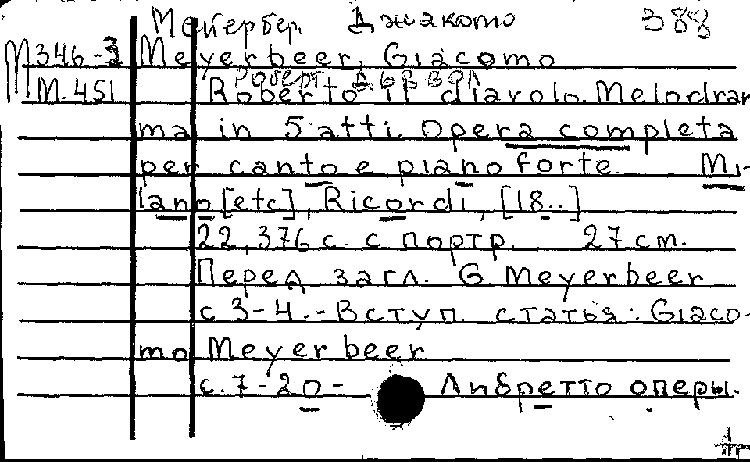 Мейербер Джакомо 388
М346-3 Meyerbeer, Giacomo
Роберт дьявол
М.451 Roberto il diavolo. Melodram
ma in 5 atti. Opera completa
per canto e pianoforte Mi-
lano [etc], Ricordi, [18..]
22, 376 с. с портр. 27 cm.
Перед загл. G Meyerbeer
с 3-4.-Вступ. статья: Giaco-
mo Meyerbeer
с.7-20- Либретто оперы.